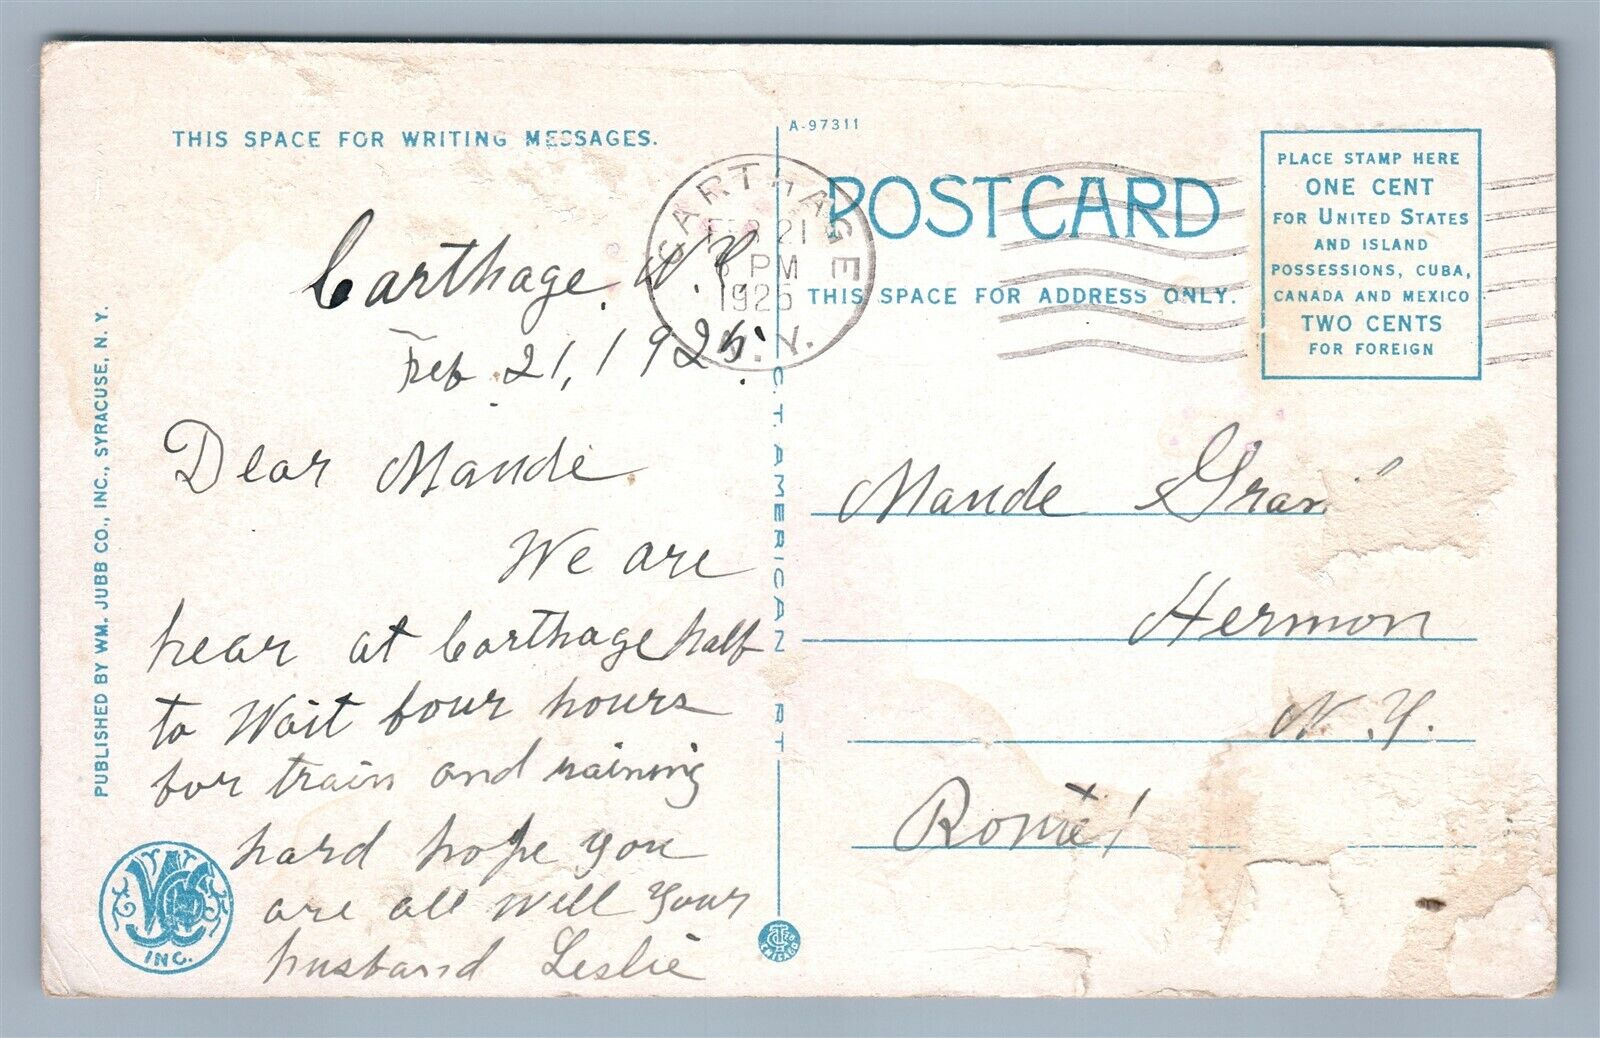 THIS SPACE FOR WRITING MESSAGES.
Carthage, N.Y.
Feb 21, 1925.
Dear Maude
We are
hear at Carthage half
to Wait four hours
for train and raining
hard hope you
are all Well Your
husband Leslie
PUBLISHED BY WM. JUBB CO., INC., SYRACUSE, N. Y.
INC.
A-97311
C.T. AMERICAN ART
CHICAGO
CARTHAGE
FEB 21
PM
1925
N.Y.
POSTCARD
THIS SPACE FOR ADDRESS ONLY.
PLACE STAMP HERE
ONE CENT
FOR UNITED STATES
AND ISLAND
POSSESSIONS, CUBA,
CANADA AND MEXICO
TWO CENTS
FOR FOREIGN
Maude
Hermon
N.Y.